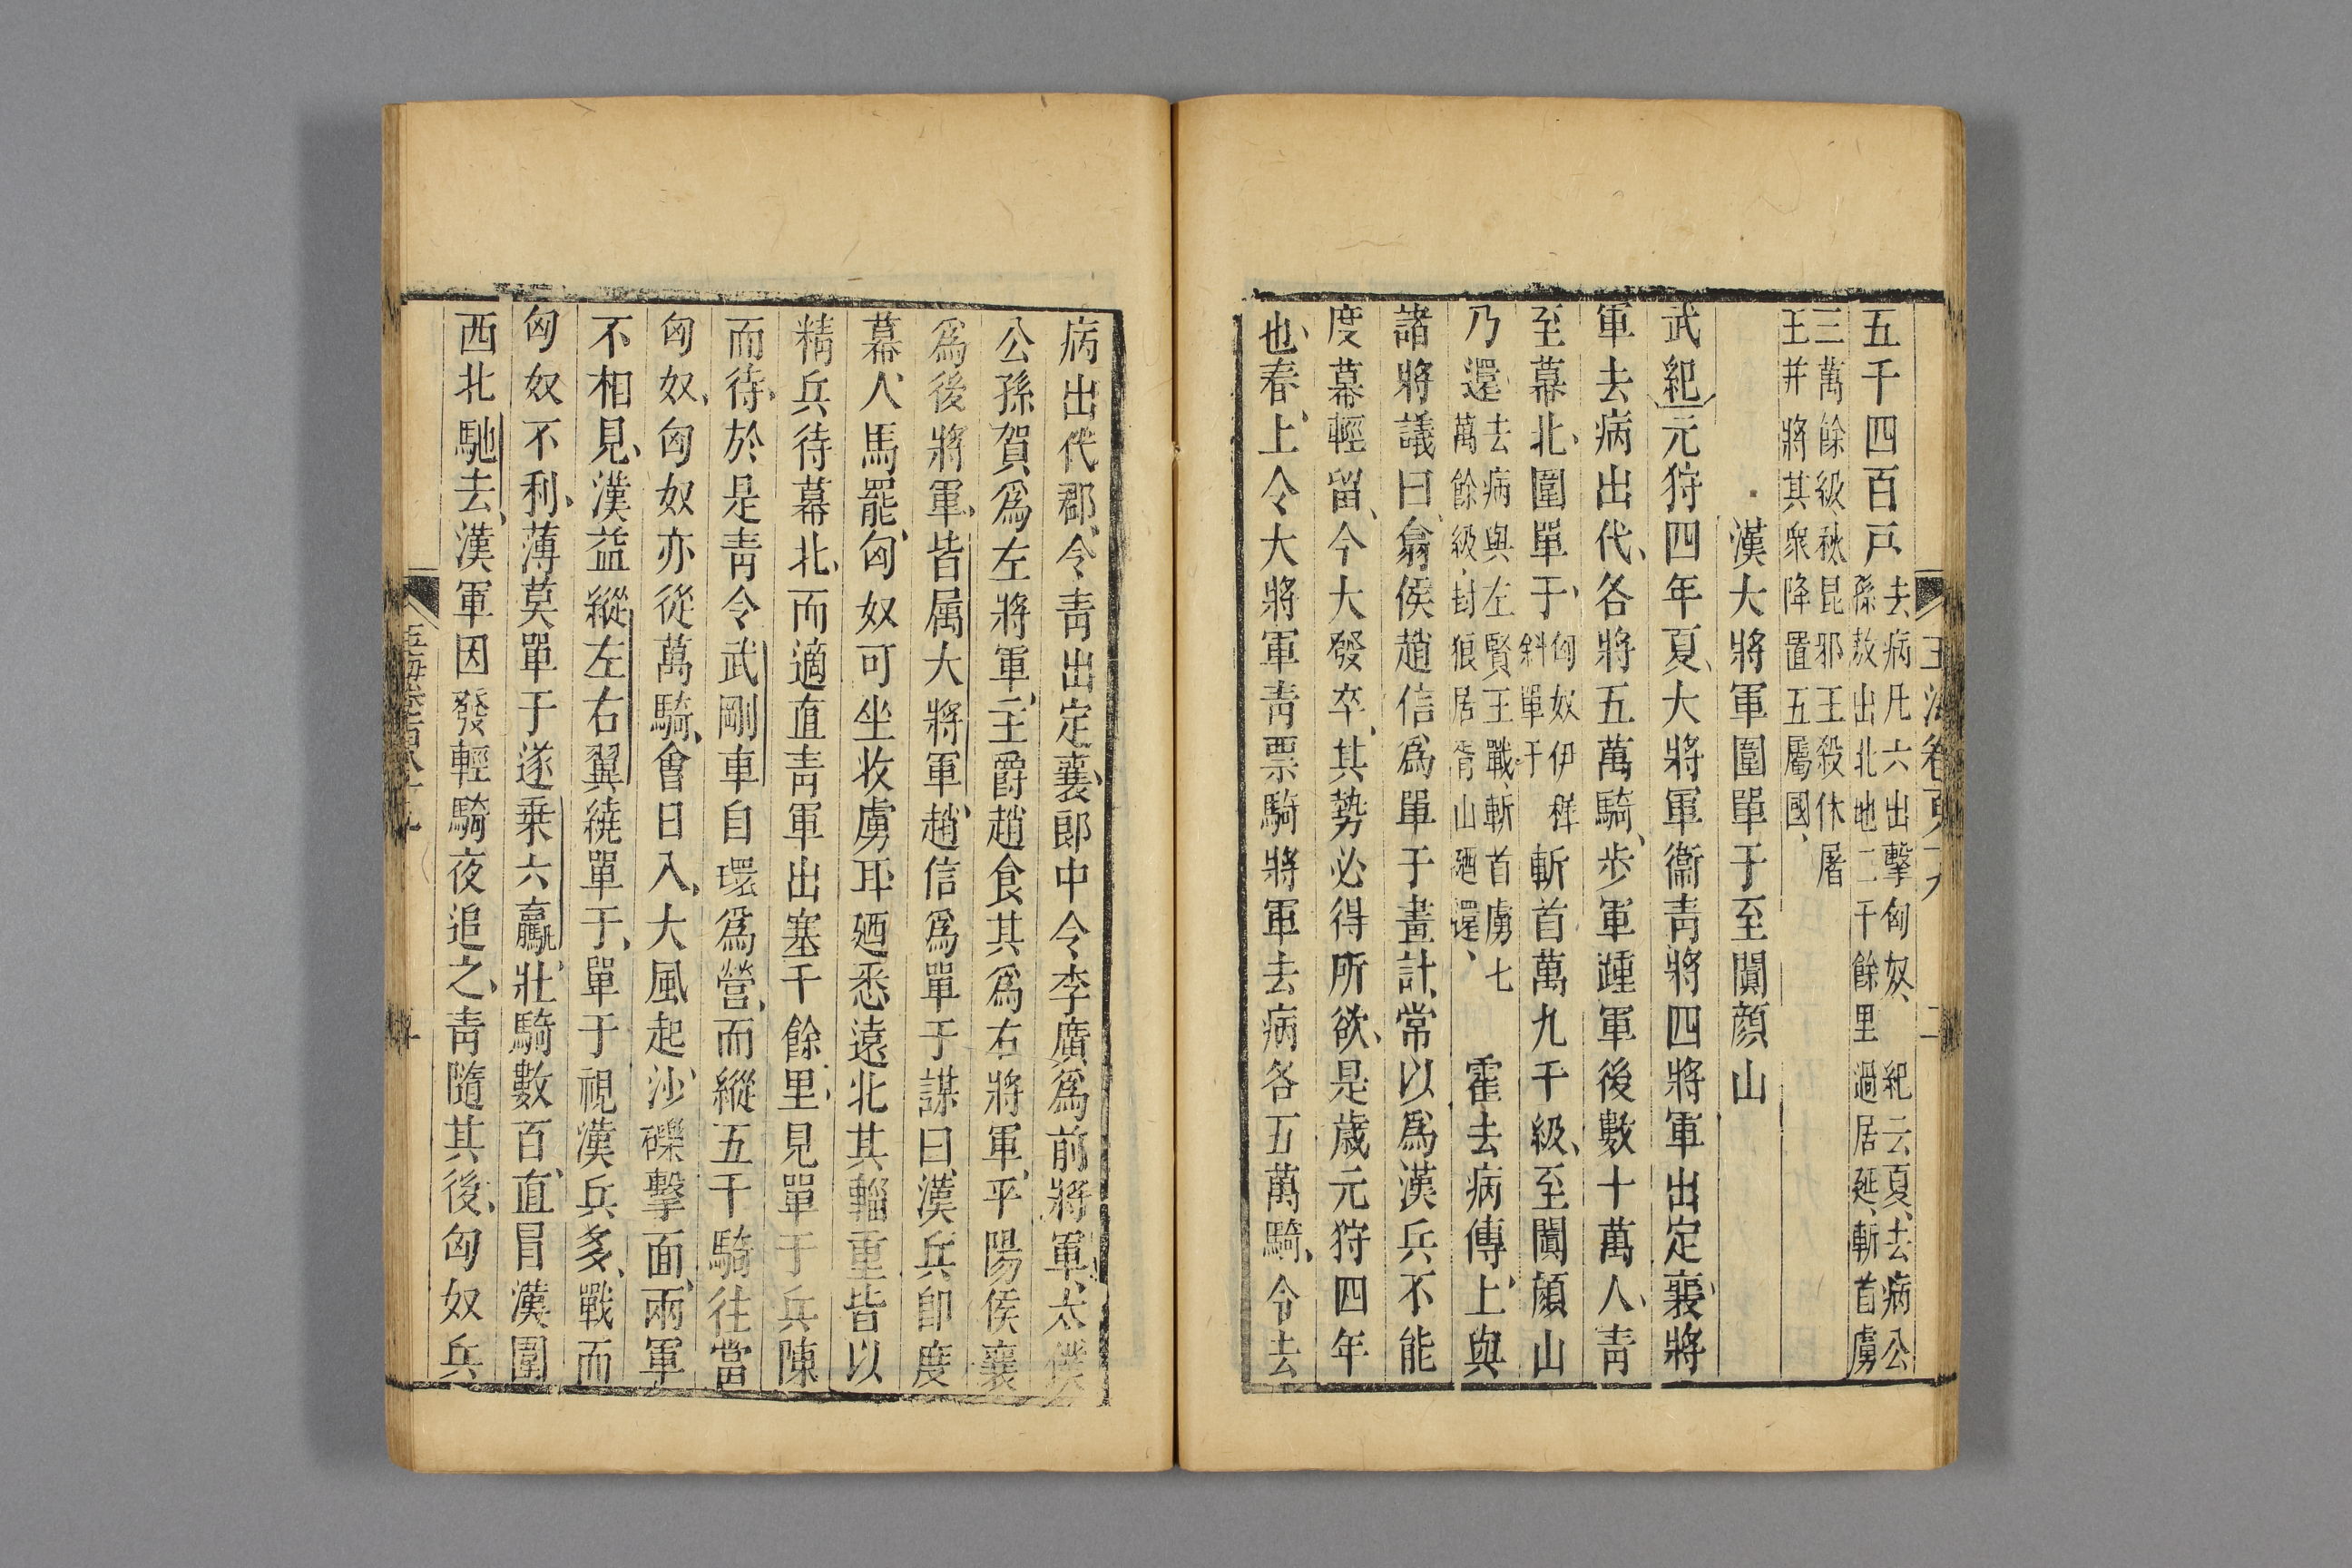 五千四百戸去病凡六出擊匈奴、紀云夏、去病公
孫敖出北地二千餘里過居延、斬首虜
三萬餘級、秋、昆邪王殺休屠
王并將其衆降置五屬國、
漢大將軍圍單于至闐顔山
武紀元狩四年夏、大將軍衞青將四將軍出定襄、將
軍去病出代、各將五萬騎、步軍踵軍後數十萬人、青
至幕北、圍單于、匈奴伊稺斜單于斬首萬九千級、至闐顔山
乃還去病與左賢王戰、斬首虜七萬餘級、封狼居胥山廼還、霍去病傳、上與
諸將議曰、翕侯趙信爲單于畫計、常以爲漢兵不能
度幕輕留、今大發卒、其勢必得所欲、是歲元狩四年
也、春、上令大將軍青票騎將軍去病各五萬騎、令去
病出代郡、令青出定襄、郎中令李廣爲前將軍、太僕
公孫賀爲左將軍、主爵趙食其爲右將軍、平陽侯襄
爲後將軍、皆属大將軍、趙信爲單于謀曰、漢兵即度
幕、人馬罷、匈奴可坐收虜耳、廼悉遠北其輜重皆以
精兵待幕北、而適直青軍出塞千餘里、見單于兵陳
而待、於是青令武剛車自環爲營、而縱五千騎往當
匈奴、匈奴亦從萬騎、會日入、大風起、沙礫擊面、兩軍
不相見、漢益縱左右翼繞單于、單于視漢兵多、戰而
匈奴不利、薄莫單于遂乗六驘、壯騎數百、直冒漢圍
西北馳去、漢軍因發輕騎夜追之、青隨其後、匈奴兵